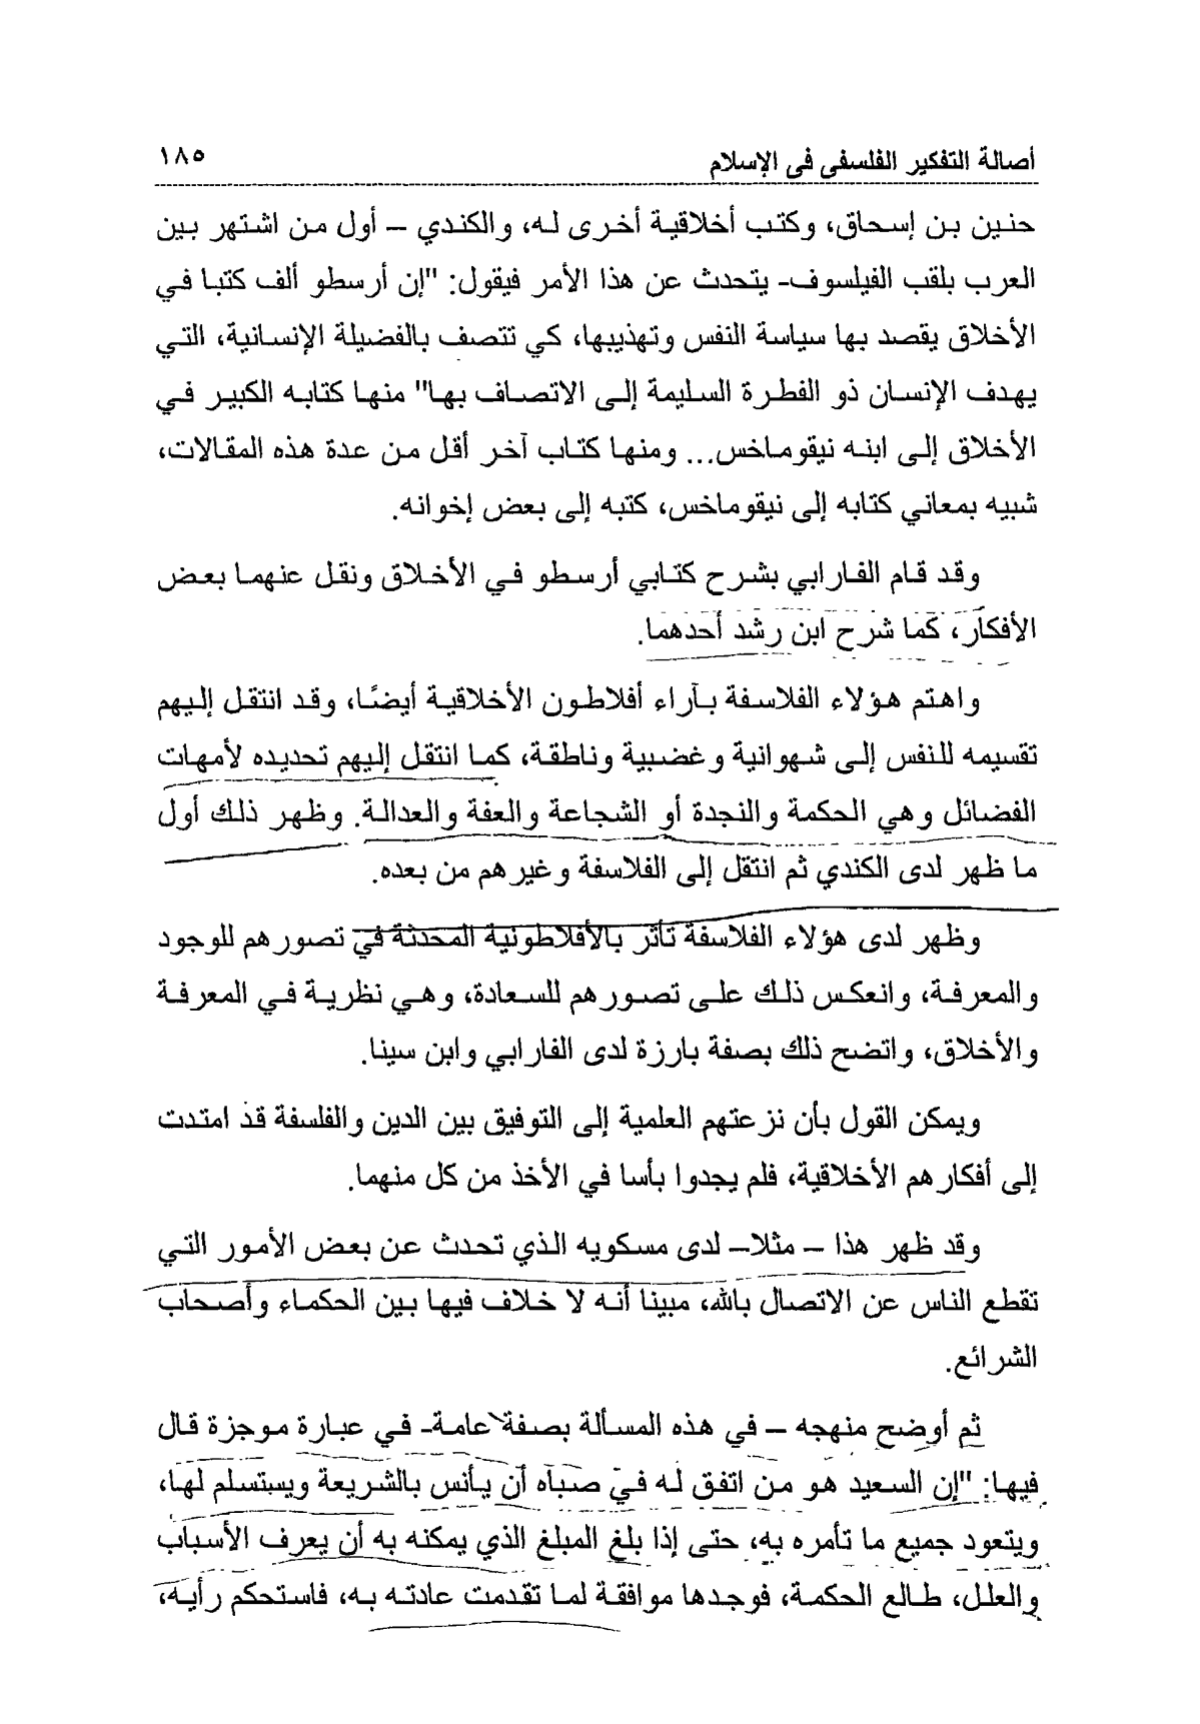 أصالة التفكير الفلسفى فى الإسلام ١٨٥
حنين بن إسحاق، وكتب أخلاقية أخرى له، والكندي – أول من اشتهر بين
العرب بلقب الفيلسوف- يتحدث عن هذا الأمر فيقول: "إن أرسطو ألف كتبا في
الأخلاق يقصد بها سياسة النفس وتهذيبها، كي تتصف بالفضيلة الإنسانية، التي
يهدف الإنسان ذو الفطرة السليمة إلى الاتصاف بها" منها كتابه الكبير في
الأخلاق إلى ابنه نيقوماخس... ومنها كتاب آخر أقل من عدة هذه المقالات،
شبيه بمعاني كتابه إلى نيقوماخس، كتبه إلى بعض إخوانه.
وقد قام الفارابي بشرح كتابي أرسطو في الأخلاق ونقل عنهما بعض
الأفكار، كما شرح ابن رشد أحدهما.
واهتم هؤلاء الفلاسفة بآراء أفلاطون الأخلاقية أيضًا، وقد انتقل إليهم
تقسيمه للنفس إلى شهوانية وغضبية وناطقة، كما انتقل إليهم تحديده لأمهات
الفضائل وهي الحكمة والنجدة أو الشجاعة والعفة والعدالة. وظهر ذلك أول
ما ظهر لدى الكندي ثم انتقل إلى الفلاسفة وغيرهم من بعده.
وظهر لدى هؤلاء الفلاسفة تأثر بالأفلاطونية المحدثة في تصورهم للوجود
والمعرفة، وانعكس ذلك على تصورهم للسعادة، وهي نظرية في المعرفة
والأخلاق، واتضح ذلك بصفة بارزة لدى الفارابي وابن سينا.
ويمكن القول بأن نزعتهم العلمية إلى التوفيق بين الدين والفلسفة قد امتدت
إلى أفكارهم الأخلاقية، فلم يجدوا بأسا في الأخذ من كل منهما.
وقد ظهر هذا – مثلا– لدى مسكويه الذي تحدث عن بعض الأمور التي
تقطع الناس عن الاتصال بالله، مبينا أنه لا خلاف فيها بين الحكماء وأصحاب
الشرائع.
ثم أوضح منهجه – في هذه المسألة بصفة عامة- في عبارة موجزة قال
فيها: "إن السعيد هو من اتفق له في صباه أن يأنس بالشريعة ويستسلم لها،
ويتعود جميع ما تأمره به، حتى إذا بلغ المبلغ الذي يمكنه به أن يعرف الأسباب
والعلل، طالع الحكمة، فوجدها موافقة لما تقدمت عادته به، فاستحكم رأيه،